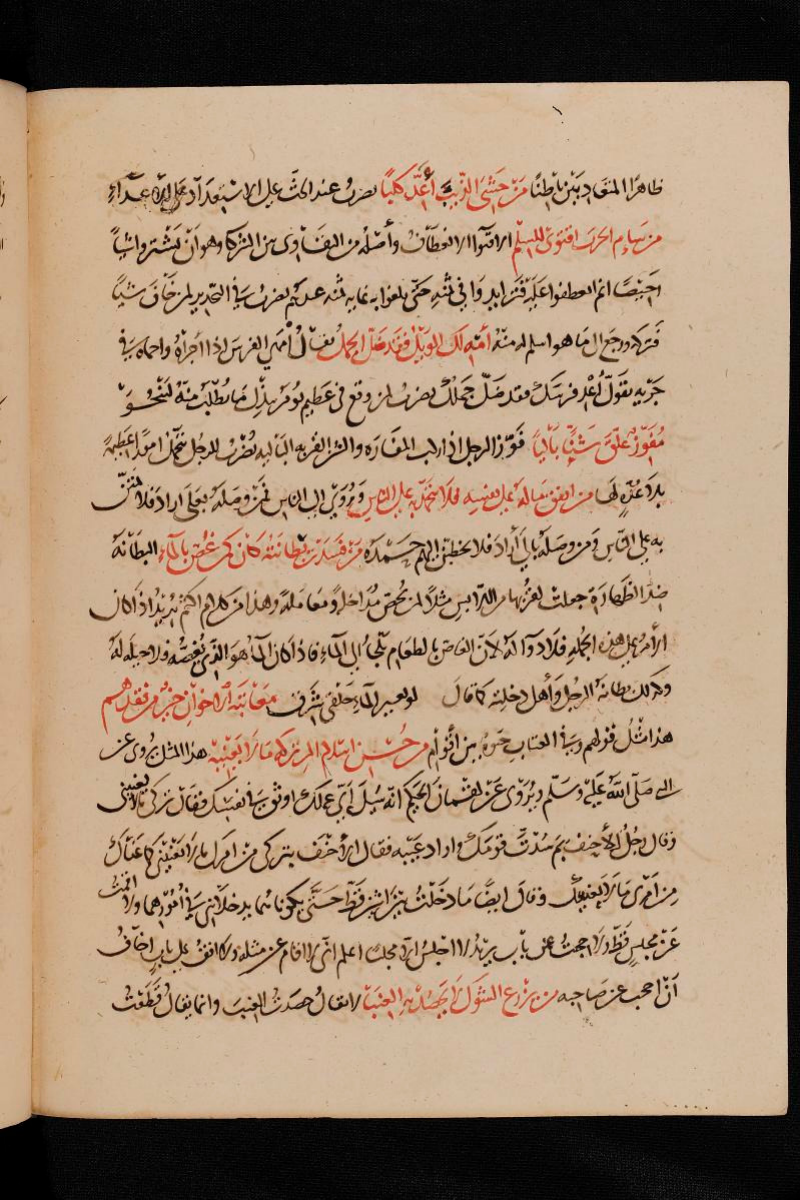 ظاهرا المتعاديين باطنا من خشى الذيب أعد كلبا يضرب عند الحث على الاستعداد على الاعداء
من سام الحرب اقتوى للسلم الاقتواء الانعطاف وأصله من التقاوى بين الشركا وهو ان يشتروا شيا
رخيصا ثم انعطفوا عليه فتزايدوا في ثمنه حتى بلغوا به غايه ثمنه عندهم يضرب في التحذير لمن خاف شيا
فتركه ورجع الى ما هو اسلم له منه أمهى لك الويل فقد ضل الجمل يقال أمهى الفرس اذا اجراه واحماه في
جريه يقول أعد فرسك فقد ضل جملك يضرب لمن وقع في عظيم يومر ببذل ما يطلب منه لينجو
مفوز علق شنا باليا فوز الرجل اذا ركب المفازه والشن القربه الباليه يضرب للرجل يحمل امورا عظيمة
بلا عدة لها من انفق ماله على نفسه فلا يتحمد به على الناس ويروى الى الناس فمن وصله بعلى اراد فلا يمتن
به على الناس ومن وصله بالى أراد فلا يخطبن اليهم حمده من فسدت بطانته كان كمن غص بالماء البطانة
ضد الظهارة جعلت لقربها من اللابس مثلا لمن يخص مداخلة ومعاملة وهذا من كلام اكثم يريد اذا كان
الأمر على هذه الجمله فلا دوآ له لان الغاص بالطعام يلجأ الى الماء فاذا كان الما هو الذي يغصه فلا حيله له
وكذلك بطانة الرجل وأهل دخلته كما قال لو بغير الماء حلقى شرق معاتبة الاخوان خير من فقدهم
هذا مثل قولهم وفي العتاب حيوة بين أقوام من حسن اسلام المرء تركه ما لا يعنيه هذا المثل يروى عن
النبى صلى الله عليه وسلم ويروى عن لقمان الحكيم انه سيل أي عملك اوثق في نفسك فقال تركى ما لا يعنينى
وقال رجل للأحنف بم سدت قومك واراد عيبه فقال الأحنف بتركى من امرك ما لا يعنينى كما عناك
من أمرى ما لا يعنيك وقال ايضا ما دخلت بين اثنين قط حتى يكونا هما يدخلاننى في أمورهما ولا اقمت
عن مجلس قط ولا حجبت عن باب يريد لا اجلس الا مجلسا اعلم انى لا اقام عن مثله ولا اقف على باب اخاف
أن احجب عن صاحبه من يزرع الشوك لا يحصد به العنبا لا يقال حصدت العنب وانما يقال قطفت